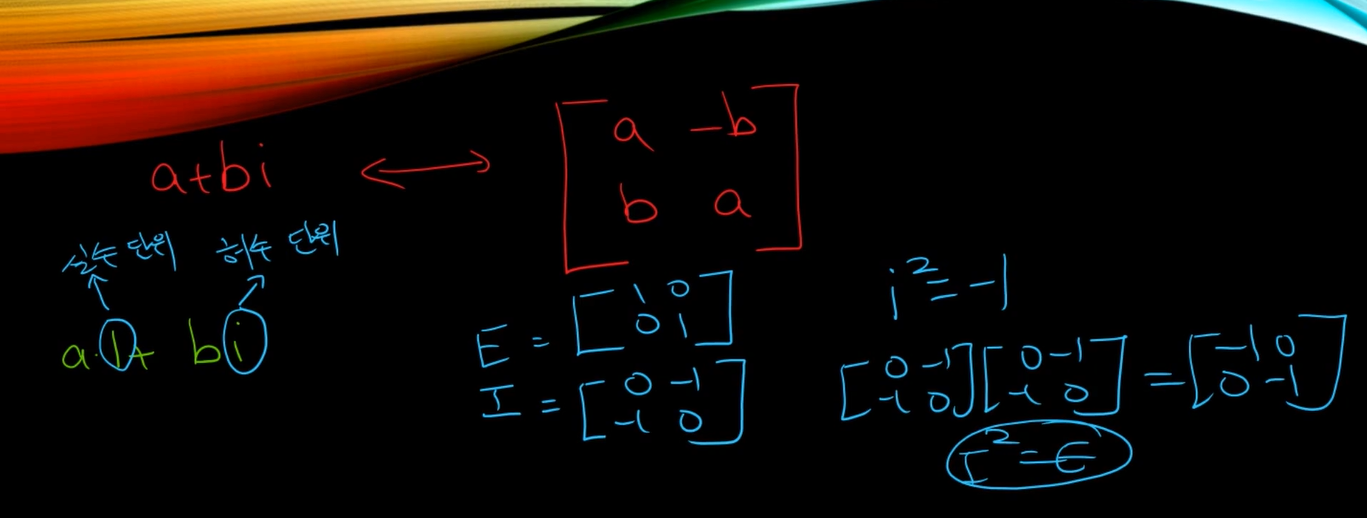 a+bi ↔ [a -b
b a]
실수 단위 허수 단위
a·1+ bi
E = [1 0
0 1]
I = [0 -1
-1 0]
i² = -1
[0 -1
-1 0] [0 -1
-1 0] = [-1 0
0 -1]
I² = -E